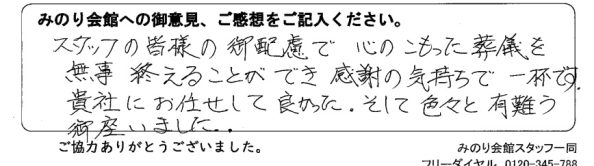 みのり会館への御意見、ご感想をご記入ください。
スタッフの皆様の御配慮で 心のこもった葬儀を
無事 終えることができ 感謝の気持ちで一杯です.
貴社にお任せして良かった.そして色々と有難う
御座いました..
ご協力ありがとうございました。
みのり会館スタッフ一同
フリーダイヤル 0120-345-788